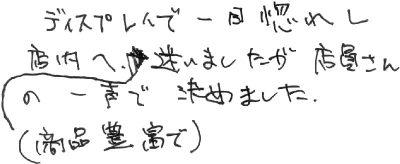 ディスプレイで一目惚れし
店内へ、迷いましたが店員さん
の一声で決めました.
(商品豊富で)